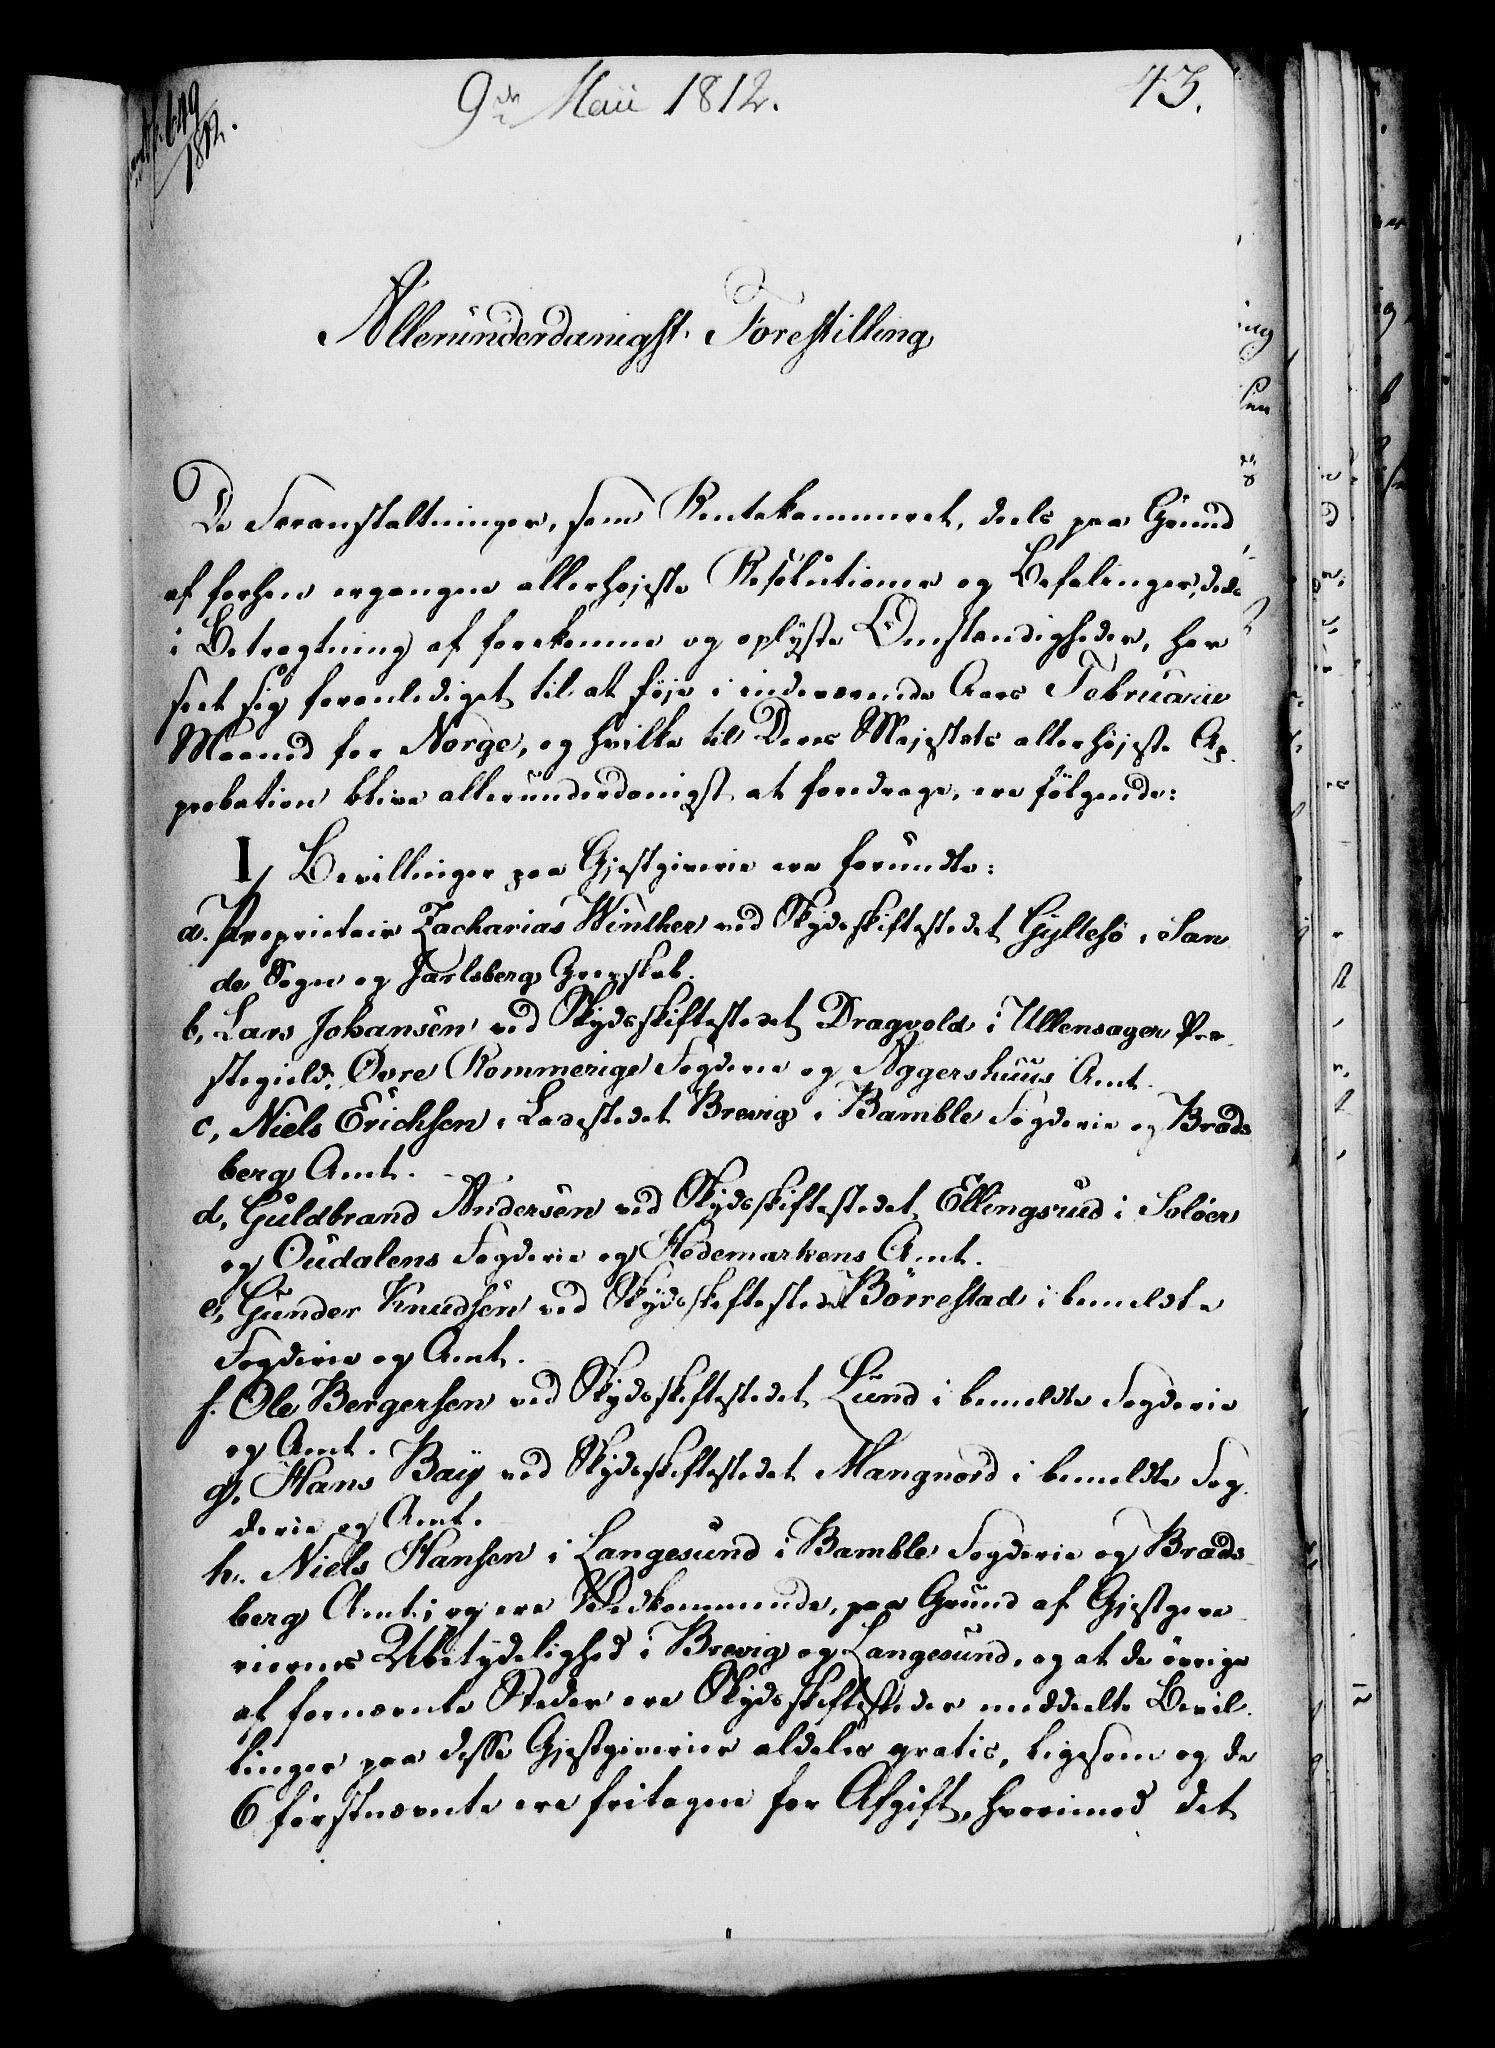 9de Maii 1812.
43.
1812.
Alleründerdanigst Forestilling
De Foranstaltninger, som Rentekammeret, deels paa Grund
af forhen ergangne allerhøjeste Resolutioner og Befalinger, deels
i Betragtning af forekomne og oplyste Omstændigheder, har
seet sig foranlediget til at føje i indeværende Aars Februarii
Maaned for Norge, og hvilke til Deres Majestæts allerhøjeste Ap-
probation blive alleründerdanigst at foredrage, ere følgende:
I, Bevillinger paa Gjestgiverie ere forundte:
a. Proprietair Zacharias Winther ved Skydsskiftestedet Gyltesö i San
de Sogn og Jarlsberg Grevskab.
b, Lars Johansen ved Skydsskiftestedet Dragvold i Ullensager Præ-
stegield, Övre Rommerige Fogderie og Aggershuus Amt.
c, Niels Erichsen i Ladestedet Brevig i Bamble Fogderie og Brads
berg Amt.
d, Guldbrand Andersen ved Skydsskiftestedet Ellingsrud i Solöer
og Oudalens Fogderie og Hedemarkens Amt.
e, Gunder Knudsen ved Skydsskiftestedet Börrestad i bemeldte
Fogderie og Amt.
f. Ole Bergersen ved Skydsskiftestedet Lund i bemeldte Fogderie
og Amt.
g, Hans Bay ved Skydsskiftestedet Mangnord i bemeldte Fog-
derie og Amt.
h. Niels Hansen i Langesund i Bamble Fogderie og Brads-
berg Amt; og ere Vedkommende, paa Grund af Gjestgive-
riernes Ubetydelighed i Brevig og Langesund, og at de övrige
af fornævnte Steder ere Skydsskiftesteder meddeelte Bevil-
linger paa disse Gjestgiverier aldeles gratis, ligesom og de
6 förstnævnte ere fritagne for Afgift, hvorimod det